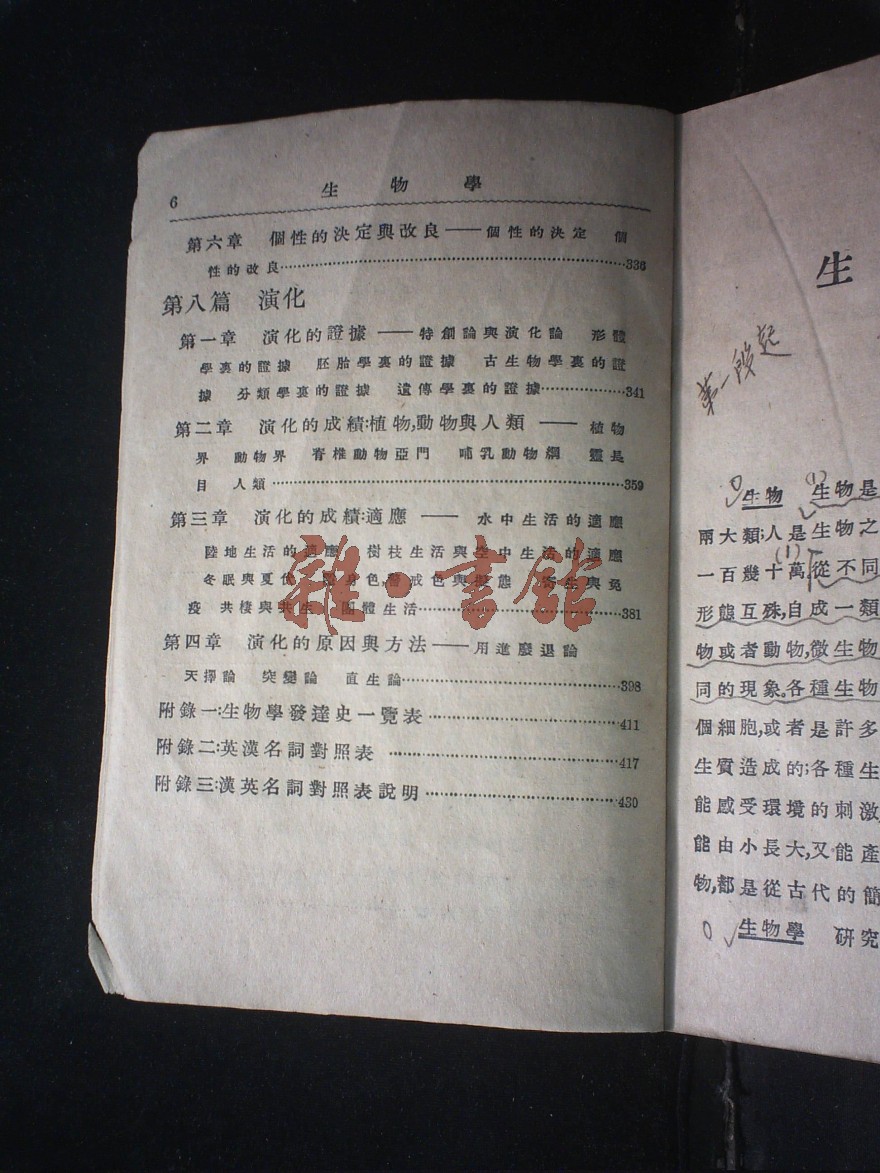 6 生物學
第六章 個性的決定與改良——個性的決定 個
性的改良……336
第八篇 演化
第一章 演化的證據——特創論與演化論 形體
學裏的證據 胚胎學裏的證據 古生物學裏的證
據 分類學裏的證據 遺傳學裏的證據……341
第二章 演化的成績:植物,動物與人類——植物
界 動物界 脊椎動物亞門 哺乳動物綱 靈長
目 人類……359
第三章 演化的成績:適應——水中生活的適應
陸地生活的適應 樹枝生活與空中生活的適應
冬眠與夏 身色,警戒色與擬態 寄生與免
疫 共棲與共生 團體生活……381
第四章 演化的原因與方法——用進廢退論
天擇論 突變論 直生論……398
附錄一:生物學發達史一覽表……411
附錄二:英漢名詞對照表……417
附錄三:漢英名詞對照表說明……430
雜·書館
生
第一段起
生物 (1) 生物是
兩大類:人是生物之
一百幾十萬,(1)從不同
形態互殊,自成一類
物或者動物,微生物
同的現象。各種生物
個細胞,或者是許多
生質造成的;各種生
能感受環境的刺激,
能由小長大,又能產
物,都是從古代的簡
生物學 研究